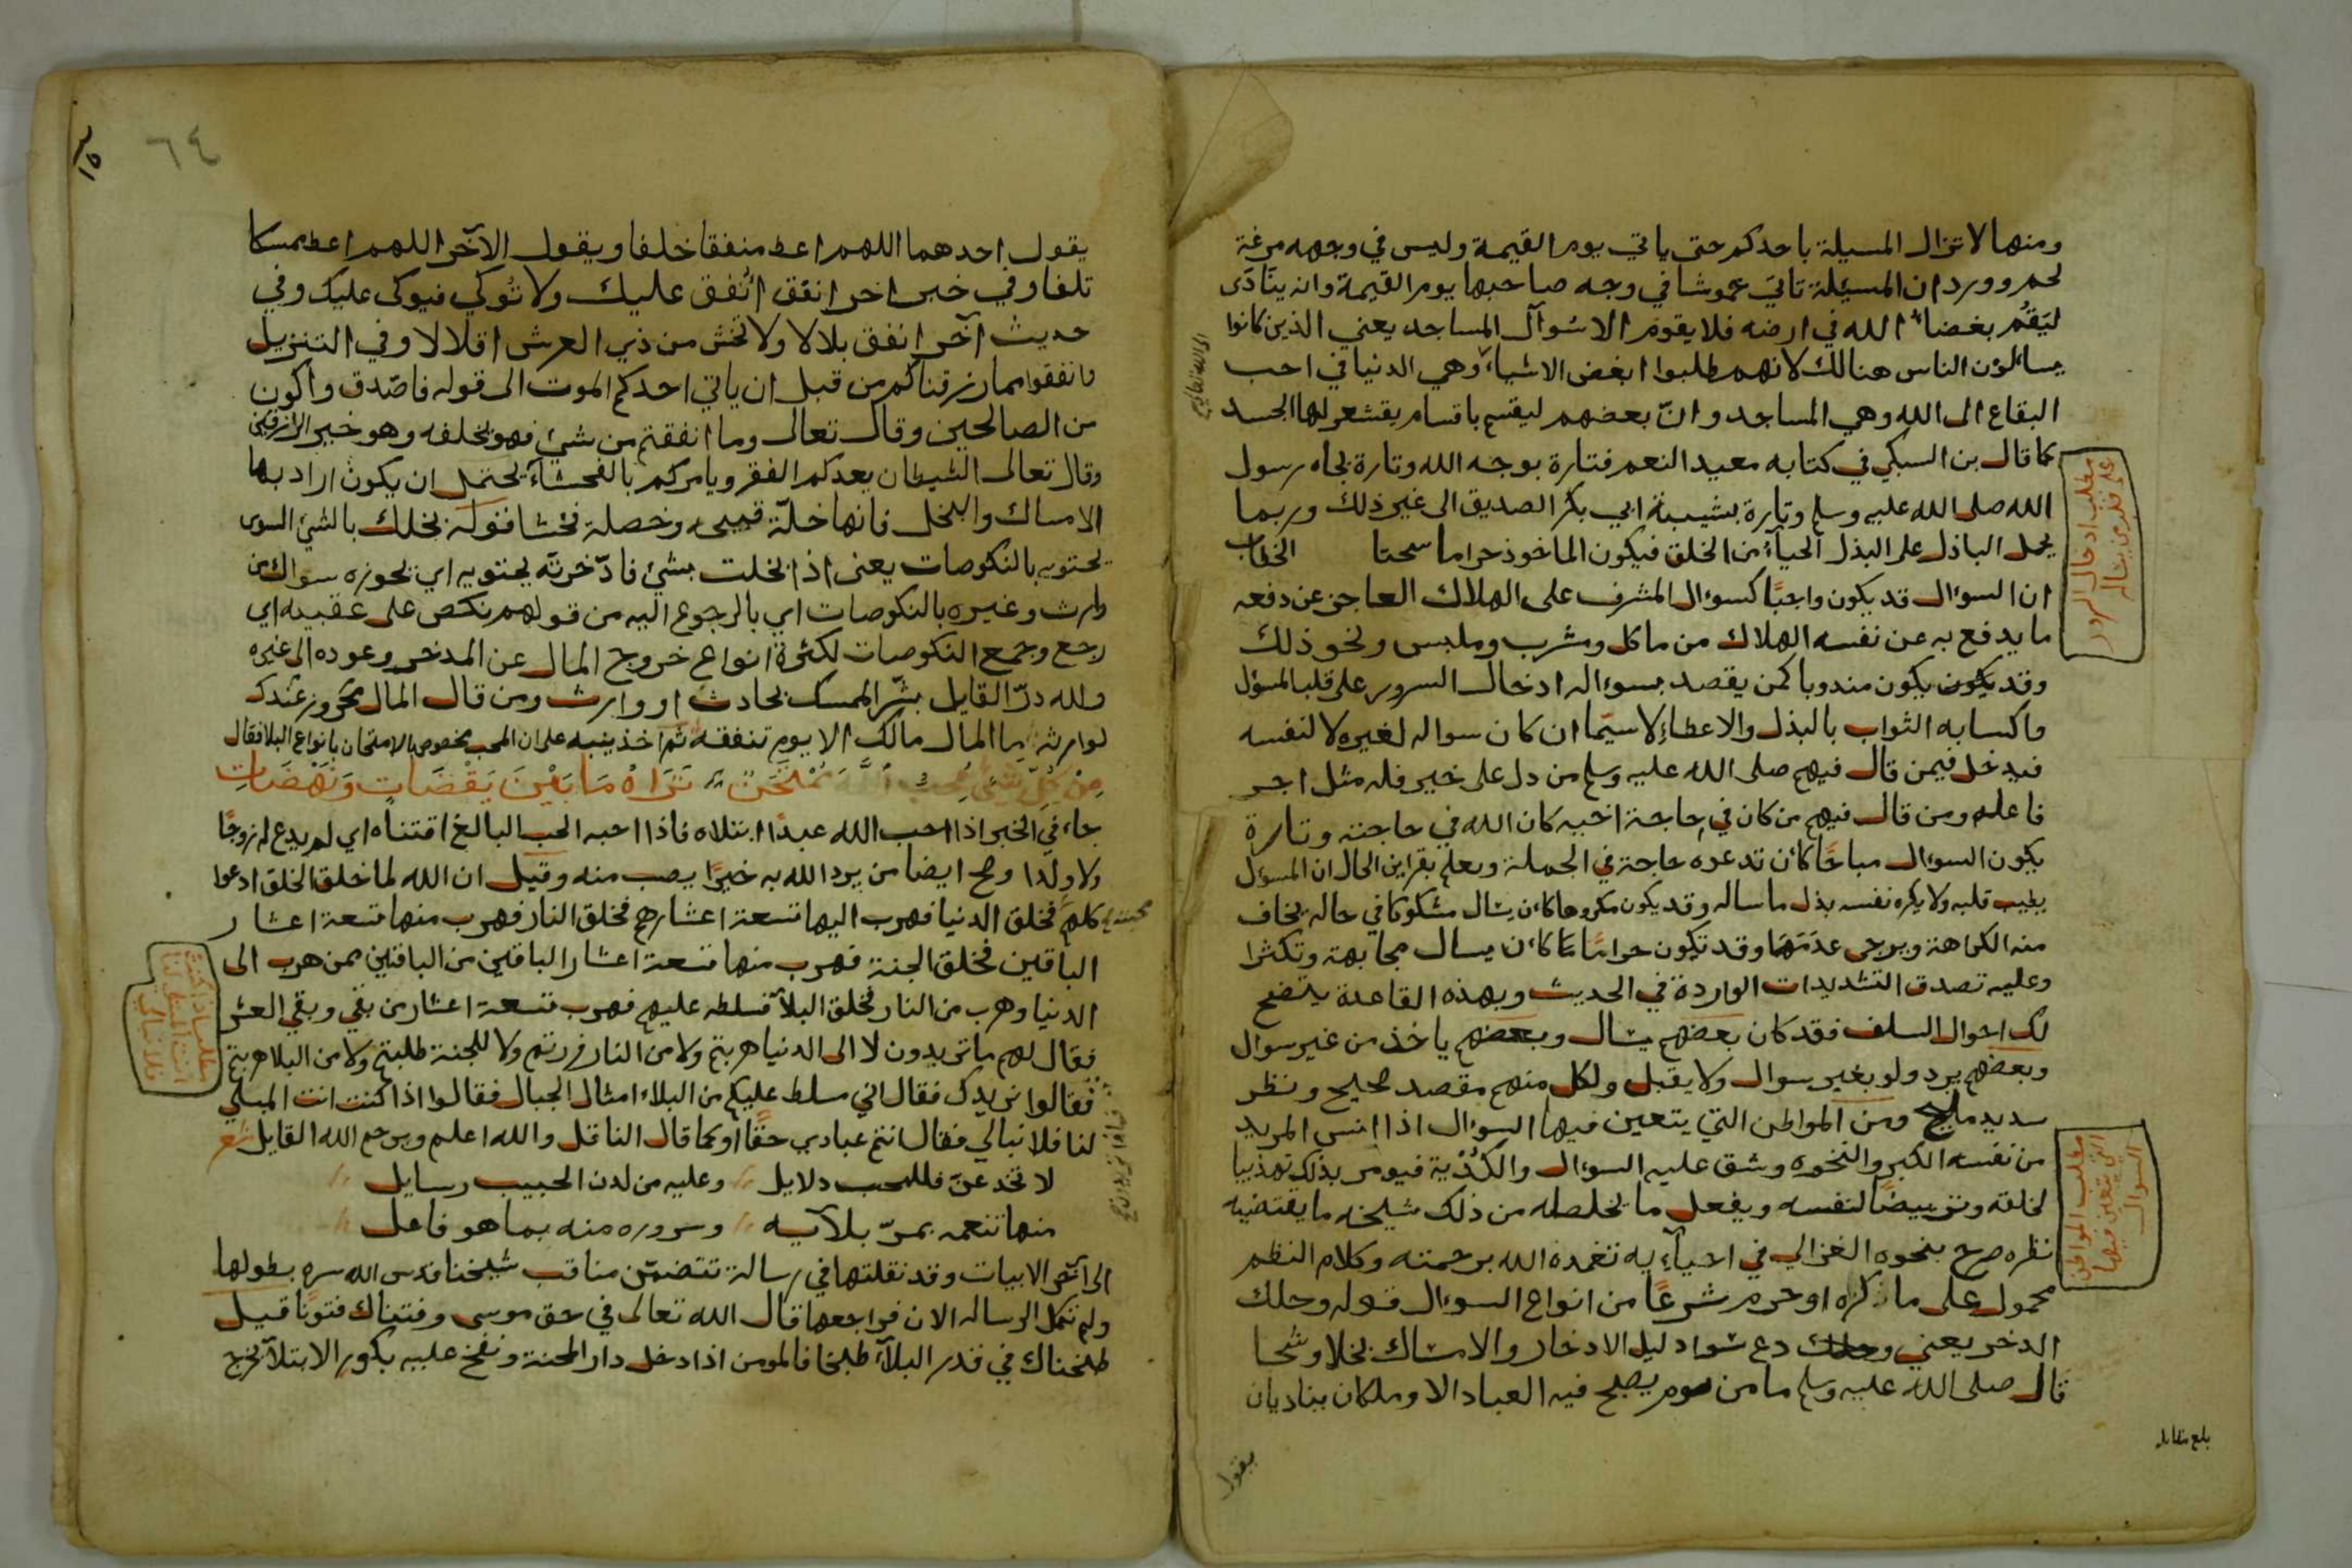 ومنها لا تزال المسيلة باحدكم حتى ياتي يوم القيمة وليس في وجهه مزعة
لحم وورد ان المسيلة تاتي خموشا في وجه صاحبها يوم القيمة وانه ينادى
ليقم بغضاء الله في ارضه فلا يقوم الا سوآل المساجد يعني الذين كانوا
يسائلون الناس هنالك لانهم طلبوا ابغض الاشياء وهي الدنيا في احب
البقاع الى الله وهي المساجد وان بعضهم ليقسم باقسام يقشعر لها الجسد
كما قال بن السبكي في كتابه معيد النعم فتارة بوجه الله وتارة بجاه رسول
الله صلى الله عليه وسلم وتارة بشيبة ابي بكر الصديق الى غير ذلك وربما
يحمل الباذل على البذل الحياء من الخلق فيكون الماخوذ حراما سحتا
ان السوال قد يكون واجبًا كسوال المشرف على الهلاك العاجز عن دفعه
ما يدفع به عن نفسه الهلاك من ماكل ومشرب وملبس ونحو ذلك
وقد يكون مندوبا كمن يقصد بسواله ادخال السرور على قلب المسؤل
واكسابه الثواب بالبذل والاعطاء لا سيما ان كان سواله لغيره لا لنفسه
فيدخل فيمن قال فيهم صلى الله عليه وسلم من دل على خير فله مثل اجر
فاعله ومن قال فيهم من كان في حاجة اخيه كان الله في حاجته وتارة
يكون السوال مباحًا كأن تدعوه حاجة في الجملة ويعلم بقراين الحال ان المسؤل
يطيب قلبه ولا يكره نفسه بذل ما ساله وقد يكون مكروها كأن يسال مشكوكا في حاله يخاف
منه الكراهة ويرجى عدمها وقد تكون حرامًا كأن يسال مجابهة وتكثرا
وعليه تصدق التشديدات الواردة في الحديث وبهذه القاعدة يتضح
لك احوال السلف فقد كان بعضهم يسال وبعضهم ياخذ من غير سوال
وبعضهم يرد ولو بغير سوال ولا يقبل ولكل منهم مقصد صحيح ونظر
سديد مليح ومن المواطن التي يتعين فيها السوال اذا انس المريد
من نفسه الكبر والنخوه وشق عليه السوال والكدية فيومر بذلك تهذيبا
لخلقه وترييضًا لنفسه ويفعل ما يخلصه من ذلك شيخه ما يقتضيه
نظره صرح بنحوه الغزالي في احيآيه تغمده الله برحمته وكلام النظم
محمول على ما ذكره او حرم شرعًا من انواع السوال قوله وحلك
الدخر يعني دع سواد ليل الادخار والامساك بخلا وشحا
قال صلى الله عليه وسلم ما من يوم يصبح فيه العباد الا وملكان يناديان
يقول
بلغ مقابله
مطلب ادخال السرور
على قلب من يسأله
مطلب المواطن
التي يتعين فيها
السوال
٦٤
يقول احدهما اللهم اعط منفقا خلفا ويقول الآخر اللهم اعط ممسكا
تلفا وفي خبر اخر انفق انفق عليك ولا توكي فيوكى عليك وفي
حديث آخر انفق بلالا ولا تخش من ذي العرش اقلالا وفي التنزيل
وانفقوا مما رزقناكم من قبل ان ياتي احدكم الموت الى قوله فاصدق واكون
من الصالحين وقال تعالى وما انفقتم من شئ فهو يخلفه وهو خير الرازقين
وقال تعالى الشيطان يعدكم الفقر ويامركم بالفحشاء يحتمل ان يكون اراد بها
الامساك والبخل فانها خلة قبيحه وخصلة فحشا فقوله بخلك بالشئ السوى
يحتويه بالنكوصات يعني اذا بخلت بشئ فادخرته يحتويه اي يحوزه سواك من
وارث وغيره بالنكوصات اي بالرجوع اليه من قولهم نكص على عقبيه اي
رجع وجمع النكوصات لكثرة انواع خروج المال عن المدخر وعوده الى غيره
ولله در القايل بشر الممسك بحادث او وارث ومن قال المال مخزون عندك
لوارثه ما المال مالك الا يوم تنفقه ثم اخذ ينبه على ان المحب مخصوص بالامتحان بانواع البلا فقال
مِنْ كُلِّ شَيْءٍ مُحِبُّ اللَّهَ مُمْتَحَنٌ تَرَاهُ مَا بَيْنَ يَقْضَاتٍ وَنَهْضَاتِ
جاء في الخبر اذا احب الله عبدًا ابتلاه فاذا احبه الحب البالغ اقتناه اي لم يدع له زوجًا
ولا ولدا وصح ايضا من يرد الله به خيرًا يصب منه وقيل ان الله لما خلق الخلق ادعوا
محبته كلهم فخلق الدنيا فهرب اليها تسعة اعشارهم فخلق النار فهرب منها تسعة اعشار
الباقين فخلق الجنة فهرب منها تسعة اعشار الباقين من الباقين ممن هرب الى
الدنيا وهرب من النار فخلق البلآ فسلطه عليهم فهرب تسعة اعشار من بقي وبقي العشر
فقال لهم ما تريدون لا الى الدنيا هربتم ولا من النار فررتم ولا للجنة طلبتم ولا من البلا هربتم
فقالوا نريدك فقال اني مسلط عليكم من البلاء امثال الجبال فقالوا اذا كنت انت المبلي
لنا فلا نبالي فقال انتم عبادي حقًا او كما قال الناقل والله اعلم ويرحم الله القايل شعر
لا تخدعن فللمحب دلايل وعليه من لدن الحبيب رسايل
منها تنعمه بمر بلآيه وسروره منه بما هو فاعل
الى آخر الابيات وقد نقلتها في رسالة تتضمن مناقب شيخنا قدس الله سره بطولها
ولم تكمل الرساله الان فراجعها قال الله تعالى في حق موسى وفتناك فتونًا قيل
طبخناك في قدر البلآء طبخا فالمومن اذا دخل دار المحنة ونفخ عليه بكور الابتلآ تخرج
مطلب اذا كنت
انت المبلي لنا
فلا نبالي